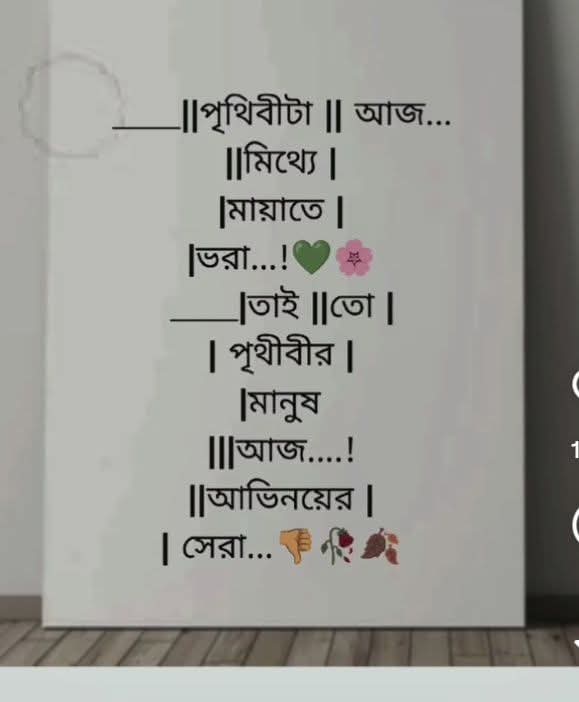 ____||পৃথিবীটা || আজ...
||মিথ্যে |
|মায়াতে |
|ভরা...!💚🌸
____|তাই ||তো |
| পৃথীবীর |
|মানুষ
|||আজ....!
||আভিনয়ের |
| সেরা...👎🥀🍂
1